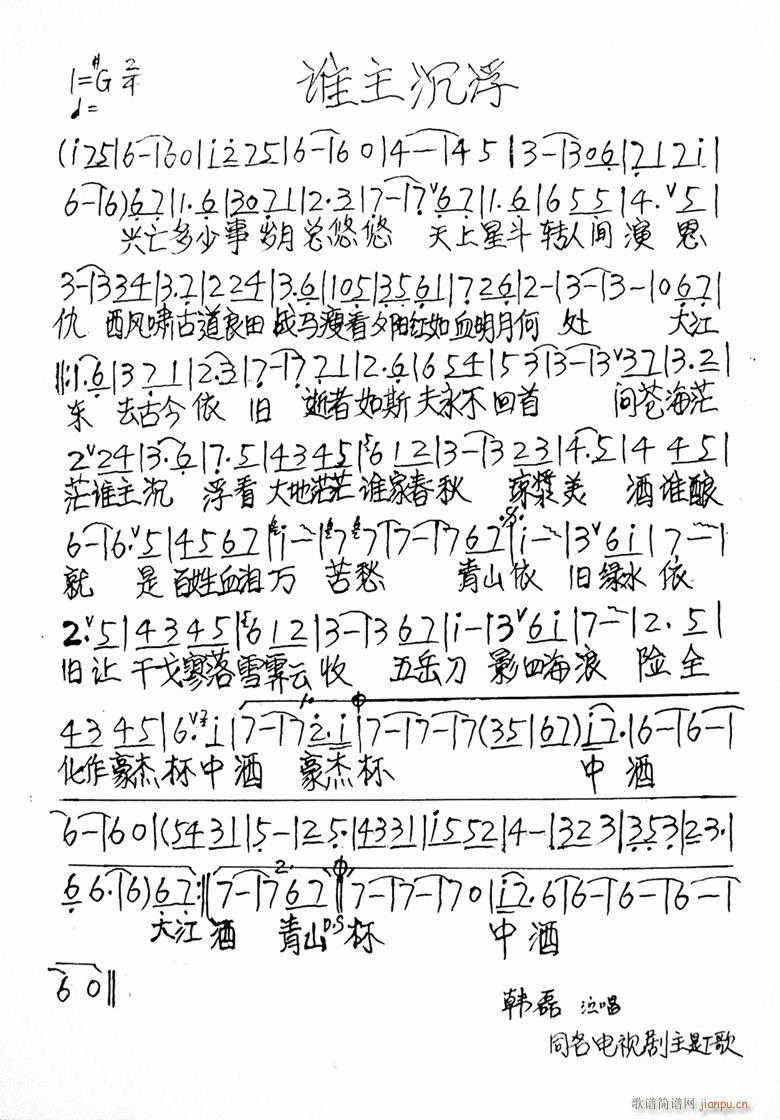 谁主沉浮
1=#G 2/4
♩=
(i 2 5 | 6 - | 6 0 | i 2 7 5 | 6 - | 6 0 | 4 - | 4 5 | 3 - | 3 0 6 | 7 1 7 i |
6 - | 6) 6 7 | 1. 6 | 3 0 7 1 | 2. 3 | 7 - | 7 ∨ 6 7 | 1. 6 | 6 5 5 | 4. ∨ 5 |
兴亡多少事 岁月总悠悠 天上星斗转人间演恩
3 - | 3 3 4 | 3. 7 | 2 2 4 | 3. 6 | 1 0 5 | 3 5 6 1 | 7 2 6 | 2 - | 3 - | 3 - | 0 6 7 |
仇 西风啸古道良田战马瘦看夕阳红如血明月何处 大江
‖: 1. 6 | 3 7 1 | 2. 3 | 7 - | 7 7 1 | 2. 6 | 6 5 4 | 5 3 | 3 - | 3 ∨ 3 7 | 3. 2 |
东 去古今依旧 逝者如斯夫永不回首 问苍海茫
2 ∨ 2 4 | 3. 6 | 7. 5 | 4 3 4 5 | 6 1 2 | 3 - | 3 2 3 | 4. 5 | 4 4 5 |
茫谁主沉 浮看大地茫茫谁家春秋 琼浆美 酒谁酿
6 - | 6. ∨ 5 | 4 5 6 7 | i - | 7 7 | 7 - | 7 6 7 | i - | 3 ∨ 6 i | 7 - |
就 是百姓血泪万苦愁 青山依旧绿水依
2. ∨ 5 | 4 3 4 5 | 6 1 2 | 3 - | 3 6 7 | i - | 3 ∨ 6 i | 7 - | 2. 5 |
旧让干戈寥落雪霁云收 五岳刀影四海浪险全
4 3 4 5 | 6. ∨ i | 7 - | 7 2. i | 7 - | 7 - | 7 (3 5 | 6 7) i 7. | 6 - | 6 - |
化作豪杰杯中酒 豪杰杯 中酒
6 - | 6 0 | (5 4 3 1 | 5 - | 2 5. | 4 3 3 1 | i 5 5 2 | 4 - | 3 2 3 | 3 5 3 | 2 3. |
6 6. | 6) 6 7 :‖ 7 - | 7 6 7 ‖ 7 - | 7 - | 7 0 | i 7. 6 | 6 - | 6 - | 6 - |
大江酒 青山D.S杯 中酒
6 0 ‖
韩磊 演唱
同名电视剧主题歌
歌谱简谱网
jianpu.cn